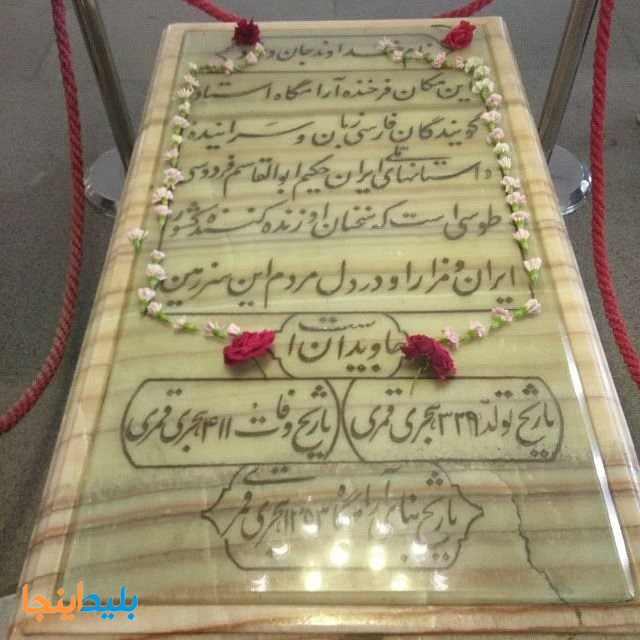 بنام خداوند جان و
این مکان فرخنده آرامگاه استاد
گویندگان فارسی زبان و سراینده
داستانهای ملی ایران حکیم ابوالقاسم فردوسی
طوسی است که سخنان او زنده کننده کشور
ایران و مزار او در دل مردم این سرزمین
جاویدان است
تاریخ تولد ۳۲۹ هجری قمری
تاریخ وفات ۴۱۱ هجری قمری
تاریخ بنای آرامگاه ۱۳۵۳ هجری قمری
بلیط اینجا